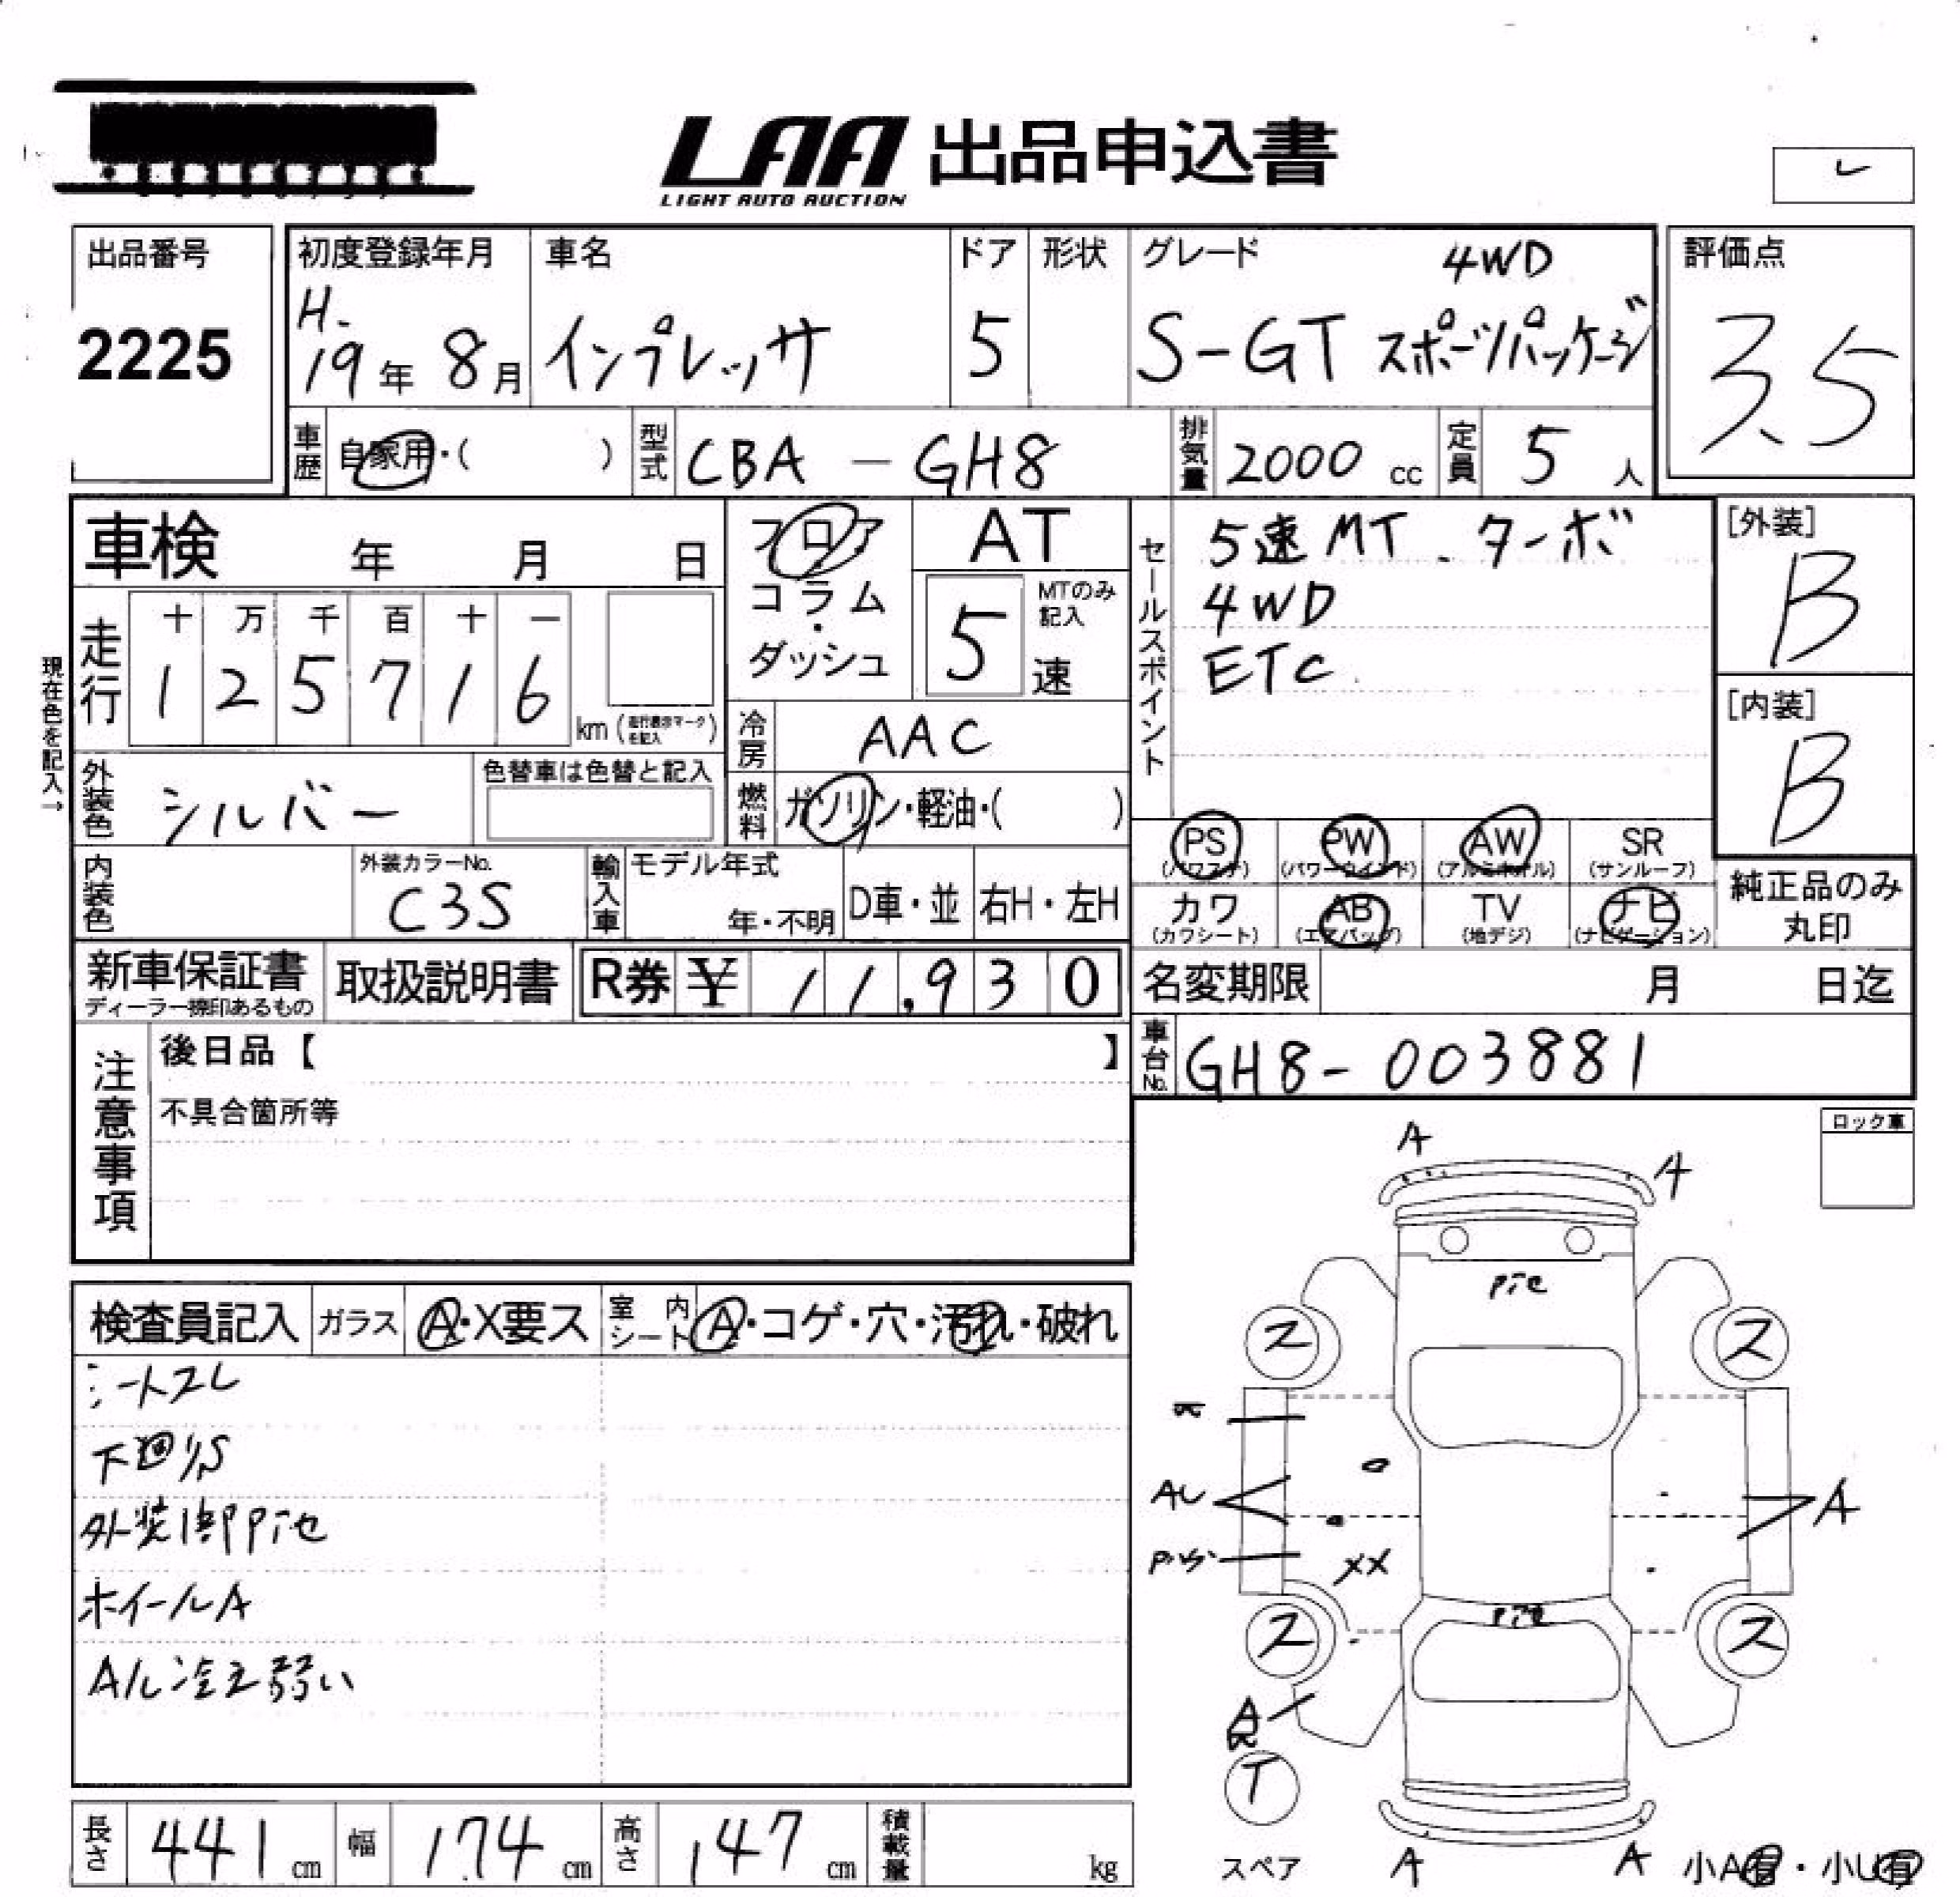 LAA 出品申込書
LIGHT AUTO AUCTION
出品番号
2225
初度登録年月
H.
19年 8月
車名
インプレッサ
ドア
5
形状
グレード
4WD
S-GT スポーツパッケージ
評価点
3.5
車歴
自家用・( )
型式
CBA - GH8
排気量
2000 cc
定員
5 人
車検 年 月 日
フロア
コラム
・
ダッシュ
AT
5
MTのみ記入
速
セールスポイント
5速MT. ターボ
4WD
ETC
[外装]
B
[内装]
B
現在色を記入→
走行
十 万 千 百 十 一
1 2 5 7 1 6
km (走行表示マークを記入)
冷房
AAC
外装色
シルバー
色替車は色替と記入
燃料
ガソリン・軽油・( )
PS
(パワステ)
PW
(パワーウインド)
AW
(アルミホイル)
SR
(サンルーフ)
カワ
(カワシート)
AB
(エアバッグ)
TV
(地デジ)
ナビ
(ナビゲーション)
純正品のみ
丸印
内装色
外装カラーNo.
C3S
輸入車
モデル年式
年・不明
D車・並
右H・左H
新車保証書
ディーラー捺印あるもの
取扱説明書
R券 ¥ 11,930
名変期限 月 日迄
車台No.
GH8-003881
注意事項
後日品【 】
不具合箇所等
ロック車
検査員記入
ガラス
A・X要ス
室内
シート
A・コゲ・穴・汚れ・破れ
シートスレ
下廻りS
ホイールA
弱い
A
A
ス
ス
A
ス
ス
XX
T
スペア
A
A
小A有・小U有
長さ
441 cm
幅
174 cm
高さ
147 cm
積載量
kg